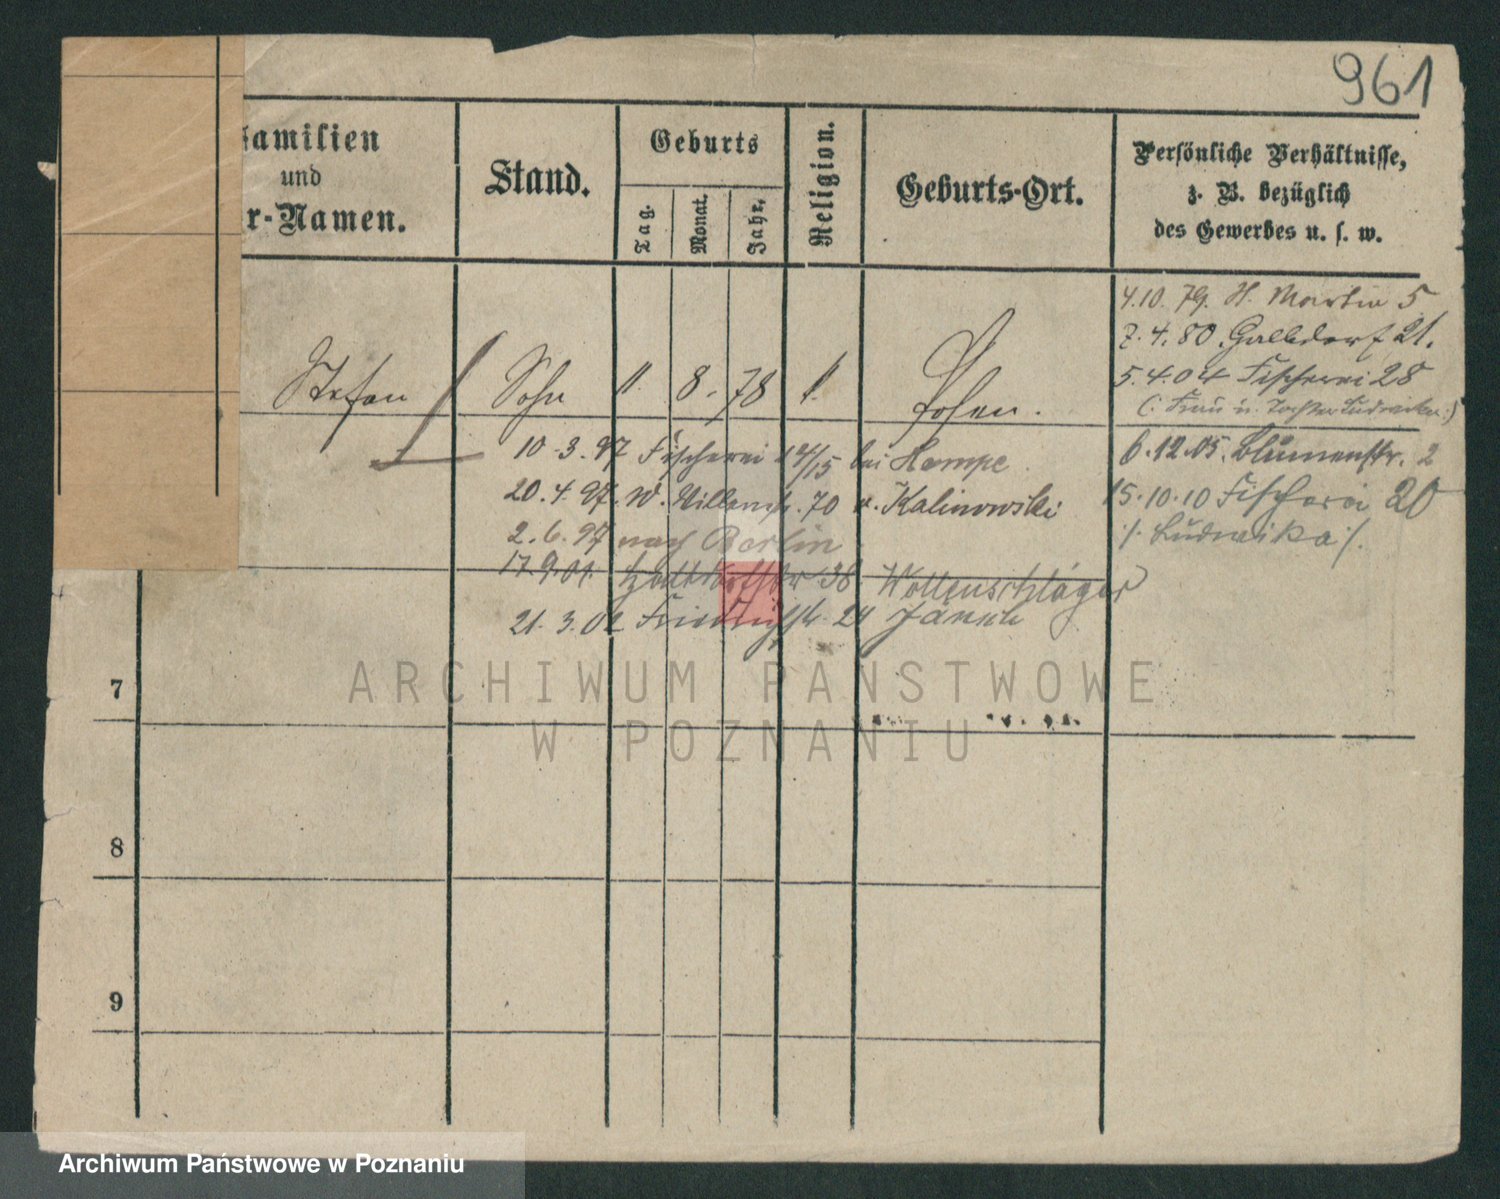 961
Familien
und
r-Namen.
Stand.
Geburts
Tag.
Monat.
Jahr.
Religion.
Geburts-Ort.
Persönliche Verhältnisse,
z. B. bezüglich
des Gewerbes u. s. w.
4.10. 79. H. Martin 5
7. 4. 80. 21.
5. 4. 04 Fischerei 28
(: Frau u. Tochter Ludwika :)
Stefan Sohn 11. 8. 78 Posen.
10. 3. 97 Fischerei 14/15 bei Hampe
6. 12. 05. Blumenstr. 2
20. 4. 97. 70 v. Kalinowski
15. 10. 10 Fischerei 20
2. 6. 97 nach Berlin
/. Ludwika /.
17.9.01. 38 Wollenschläger
21. 3. 02 Friedrichstr. 24
7
8
9
ARCHIWUM PAŃSTWOWE
W POZNANIU
Archiwum Państwowe w Poznaniu